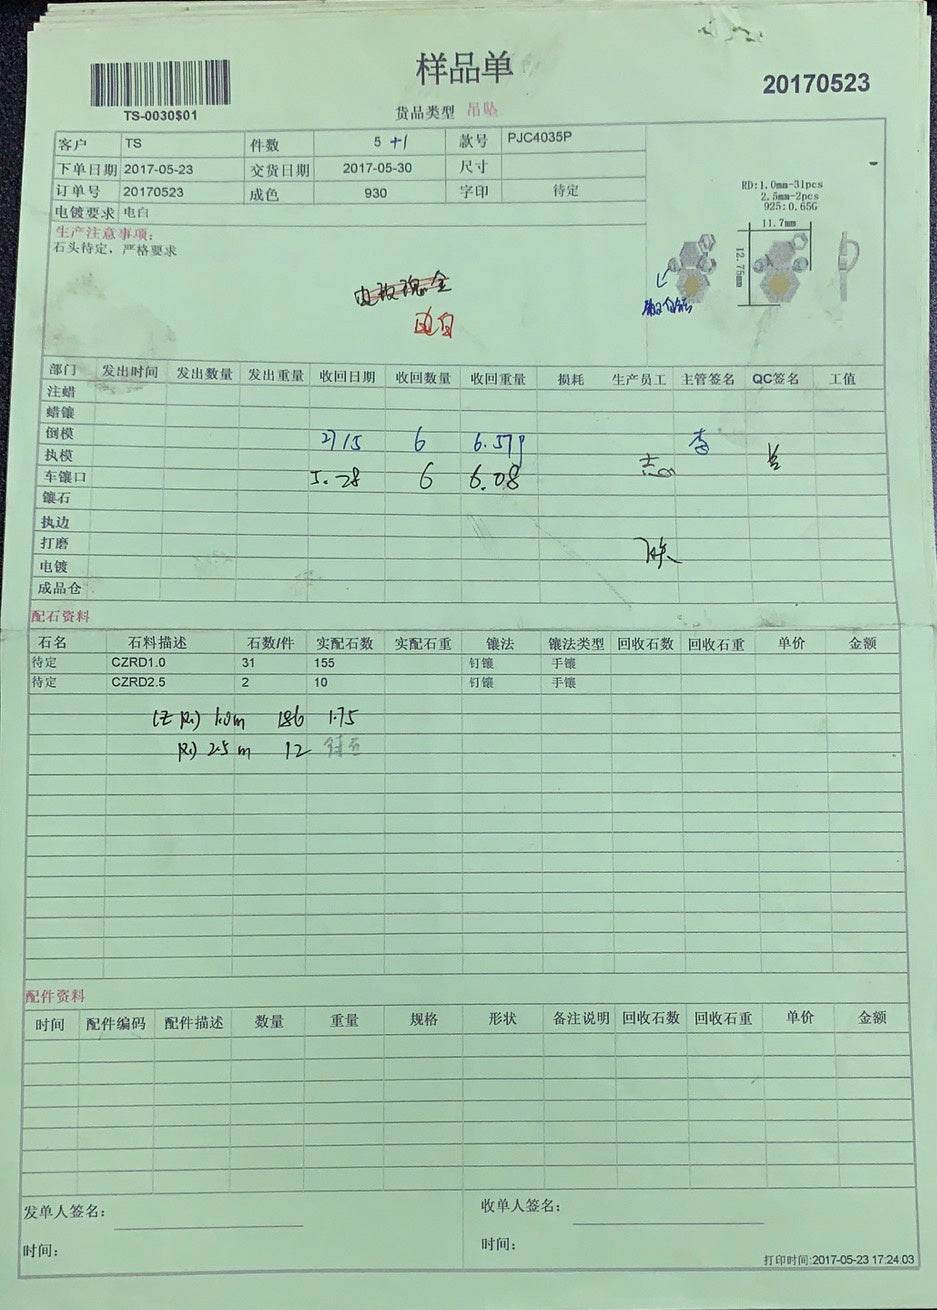 样品单
20170523
TS-0030$01
货品类型 吊坠
客户 TS 件数 5 +1 款号 PJC4035P
下单日期 2017-05-23 交货日期 2017-05-30 尺寸
订单号 20170523 成色 930 字印 待定
电镀要求 电白
生产注意事项:
石头待定，严格要求
电玫瑰金
电白
RD:1.0mm-31pcs
2.5mm-2pcs
925:0.65G
11.7mm
12.75mm
部门 发出时间 发出数量 发出重量 收回日期 收回数量 收回重量 损耗 生产员工 主管签名 QC签名 工值
注蜡
蜡镶
倒模 27/5 6 6.57g 李
执模 志
车镶口 5.28 6 6.08
镶石
执边
打磨
电镀
成品仓
配石资料
石名 石料描述 石数/件 实配石数 实配石重 镶法 镶法类型 回收石数 回收石重 单价 金额
待定 CZRD1.0 31 155 钉镶 手镶
待定 CZRD2.5 2 10 钉镶 手镶
CZ RD 1.0m 186 1.75
RD 2.5m 12
配件资料
时间 配件编码 配件描述 数量 重量 规格 形状 备注说明 回收石数 回收石重 单价 金额
发单人签名： 收单人签名：
时间： 时间：
打印时间:2017-05-23 17:24:03